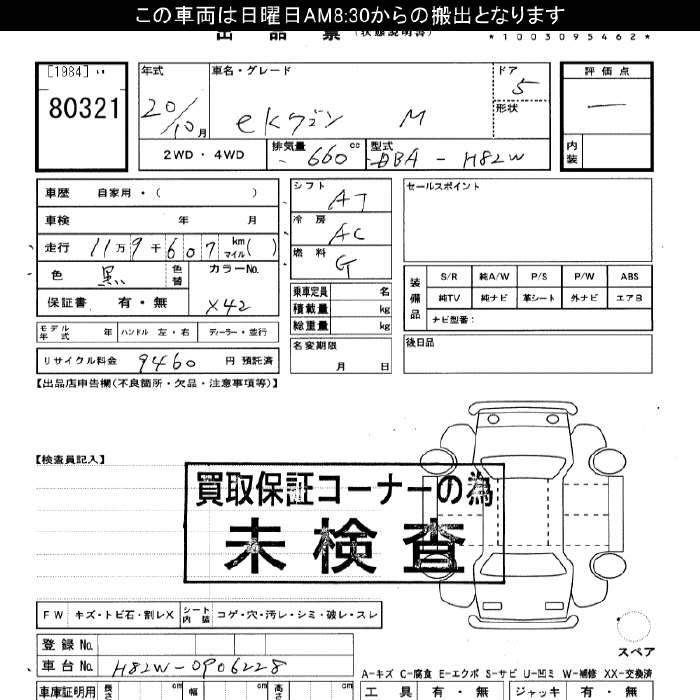 この車両は日曜日AM8:30からの搬出となります
出品票 (状態説明書) *1003095462*
[1984]
80321
年式 車名・グレード ドア 評価点
20/10月 eKワゴン M 5 —
形状
2WD・4WD 排気量 660 cc 型式 DBA-H82W 内装
車歴 自家用・( )
車検 年 月
走行 11万9千607 km マイル( )
色 黒 色替 カラーNo.
保証書 有・無 X42
モデル年式 年 ハンドル 左・右 ディーラー・並行
リサイクル料金 9460 円 預託済
シフト AT
冷房 AC
燃料 G
乗車定員 名
積載量 kg
総重量 kg
名変期限
月 日
セールスポイント
装備品 S/R 純A/W P/S P/W ABS
純TV 純ナビ 革シート 外ナビ エアB
ナビ型番:
後日品
【出品店申告欄(不良箇所・欠品・注意事項等)】
【検査員記入】
買取保証コーナーの為
未検査
FW キズ・トビ石・割レX シート内装 コゲ・穴・汚レ・シミ・破レ・スレ
スペア
登録No.
車台No. H82W-0906228
A-キズ C-腐食 E-エクボ S-サビ U-凹ミ W-補修 XX-交換済
車庫証明用 長さ cm 幅 cm 高さ cm 工具 有・無 ジャッキ 有・無